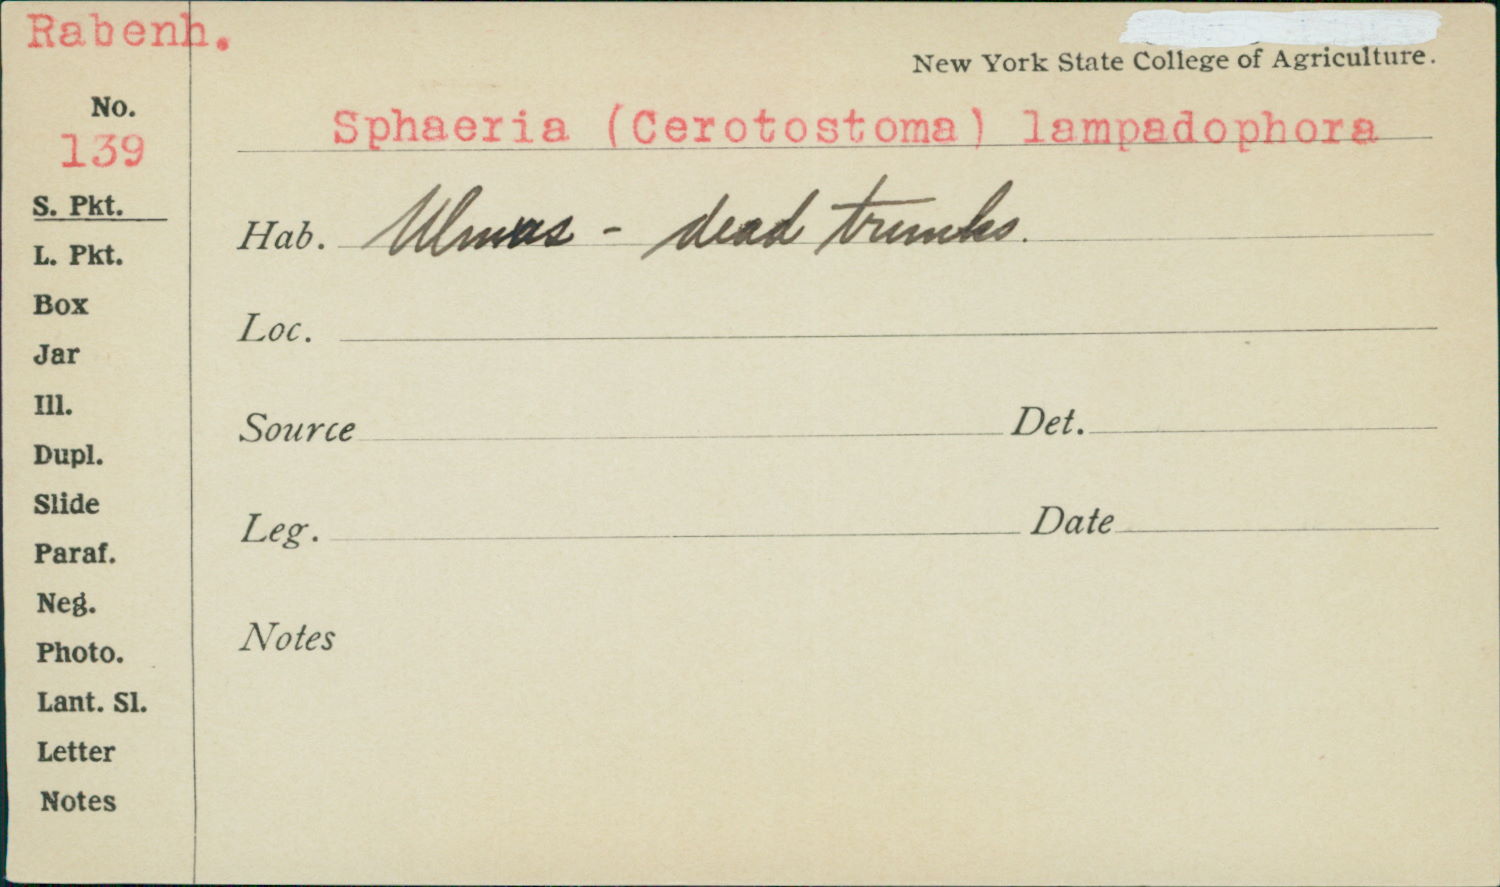 Rabenh.
New York State College of Agriculture.
No.
139
Sphaeria (Cerotostoma) lampadophora
S. Pkt.
L. Pkt.
Box
Jar
Ill.
Dupl.
Slide
Paraf.
Neg.
Photo.
Lant. Sl.
Letter
Notes
Hab. Ulmus - dead trunks.
Loc.
Source Det.
Leg. Date
Notes